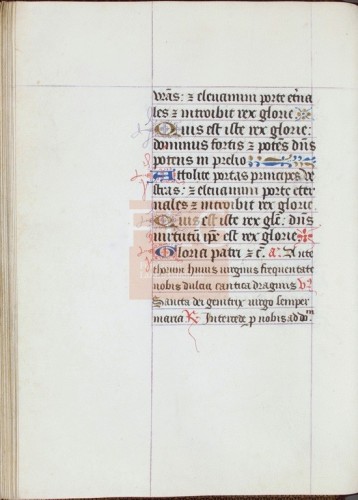 vrãs: ⁊ eleuamini porte et̃na
les ⁊ introibit rex glorie
Quis est iste rex glorie:
dominus fortis ⁊ potẽs dñs
potens in prelio
Attolite portas principes ve
stras: ⁊ eleuamini porte eter
nales ⁊ introibit rex glorie
Quis est iste rex gl̃e: dñs
uirtutũ ip̃e est rex glorie
Gloria patri ⁊ c̃. a. Ante
thorum huius uirginis frequentate
nobis dulcia cantica dragmis V
Sancta dei genitrix uirgo semper
maria R. Intercede p nobis ad do